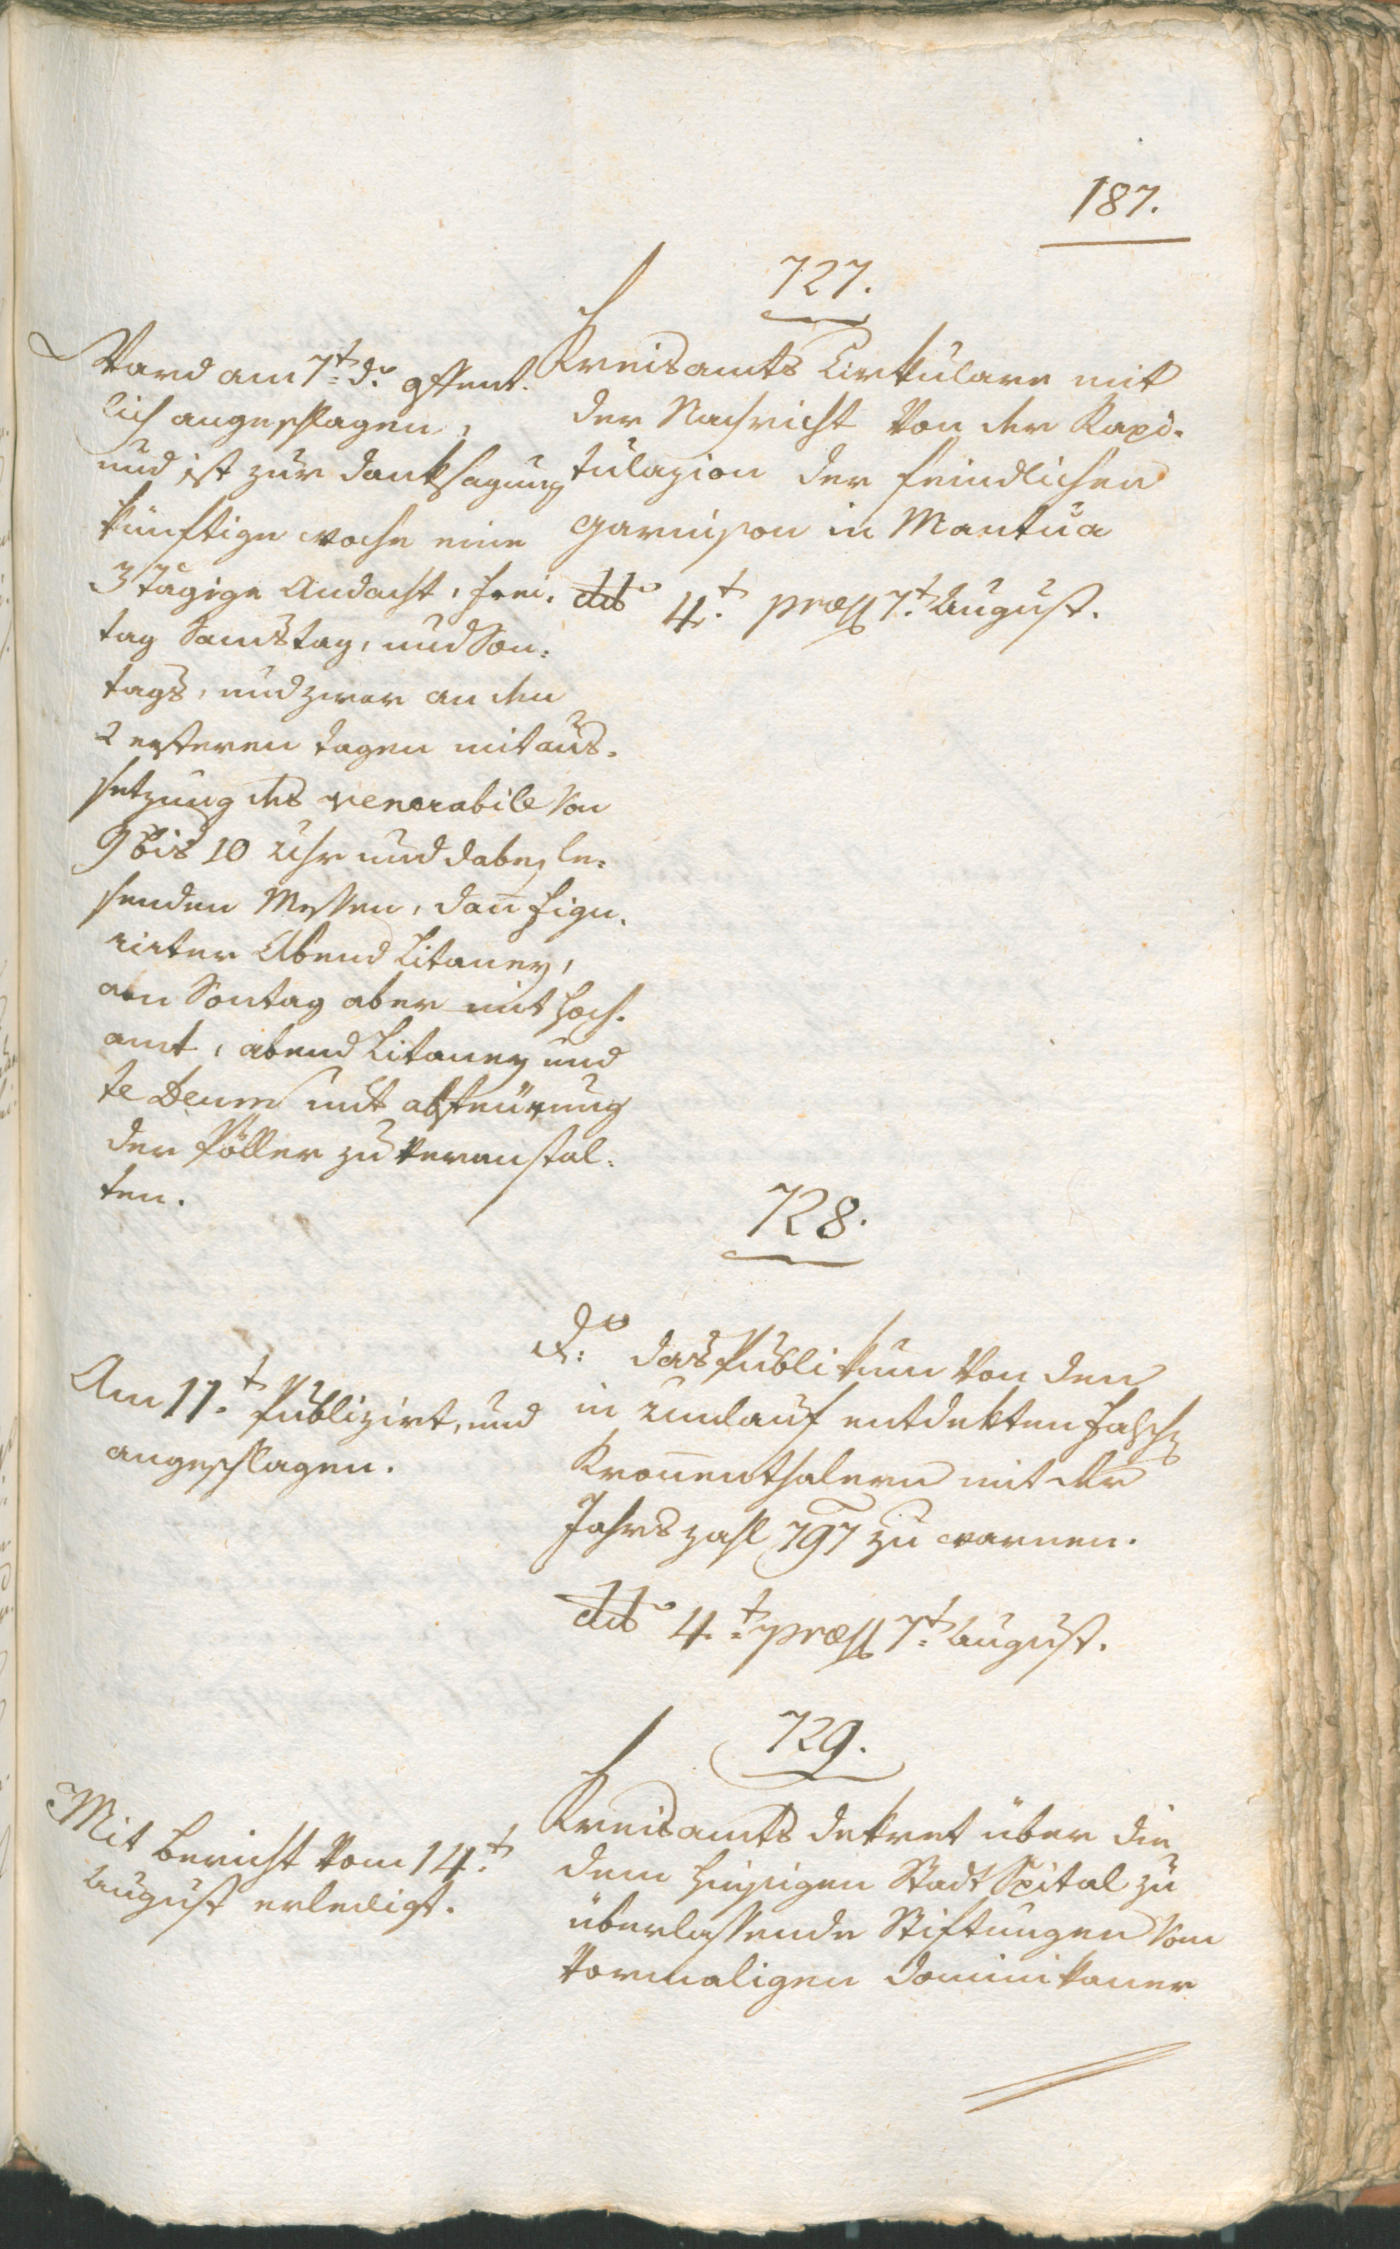 187.
727.
Kreisamts Cirkulare mit
der Nachricht von der Kapi-
tulazion der feindlichen
Garnison in Mantua
ddo 4.t præs 7.t August.
Ward am 7t d. offent-
lich angeschlagen,
und ist zur Danksagung
künftige woche eine
3 tägige Andacht, Frei-
tag Samstag, und Son-
tags, und zwar an den
2 ersteren tagen mit aus-
setzung des venerabile von
9 bis 10 Uhr und dabey le-
senden Messen, dan̄ figu-
rirter Abend Litaney,
am Sontag aber mit Hoch-
amt, abend Litaney und
te Deum mit abfeürung
der Pöller zu veranstal-
ten.
728.
do das Publikum von den
in umlauf entdekten falsch
Kron̄enthalern mit der
Jahrszahl 797 zu warnen.
ddo 4.t præs 7t August.
Am 11.t Publizirt, und
angeschlagen.
729.
Kreisamts dekret über die
dem hiesigen Stadt Spital zu
überlassende Stiftungen vom
vormaligen Dominikaner
Mit Bericht vom 14.t
August erledigt.